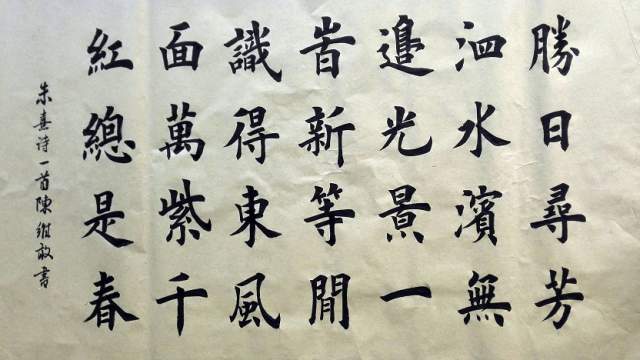 勝日尋芳
泗水濱無
邊光景一
旹新等閒
識得東風
面萬紫千
紅總是春
朱熹诗一首陳維敢書